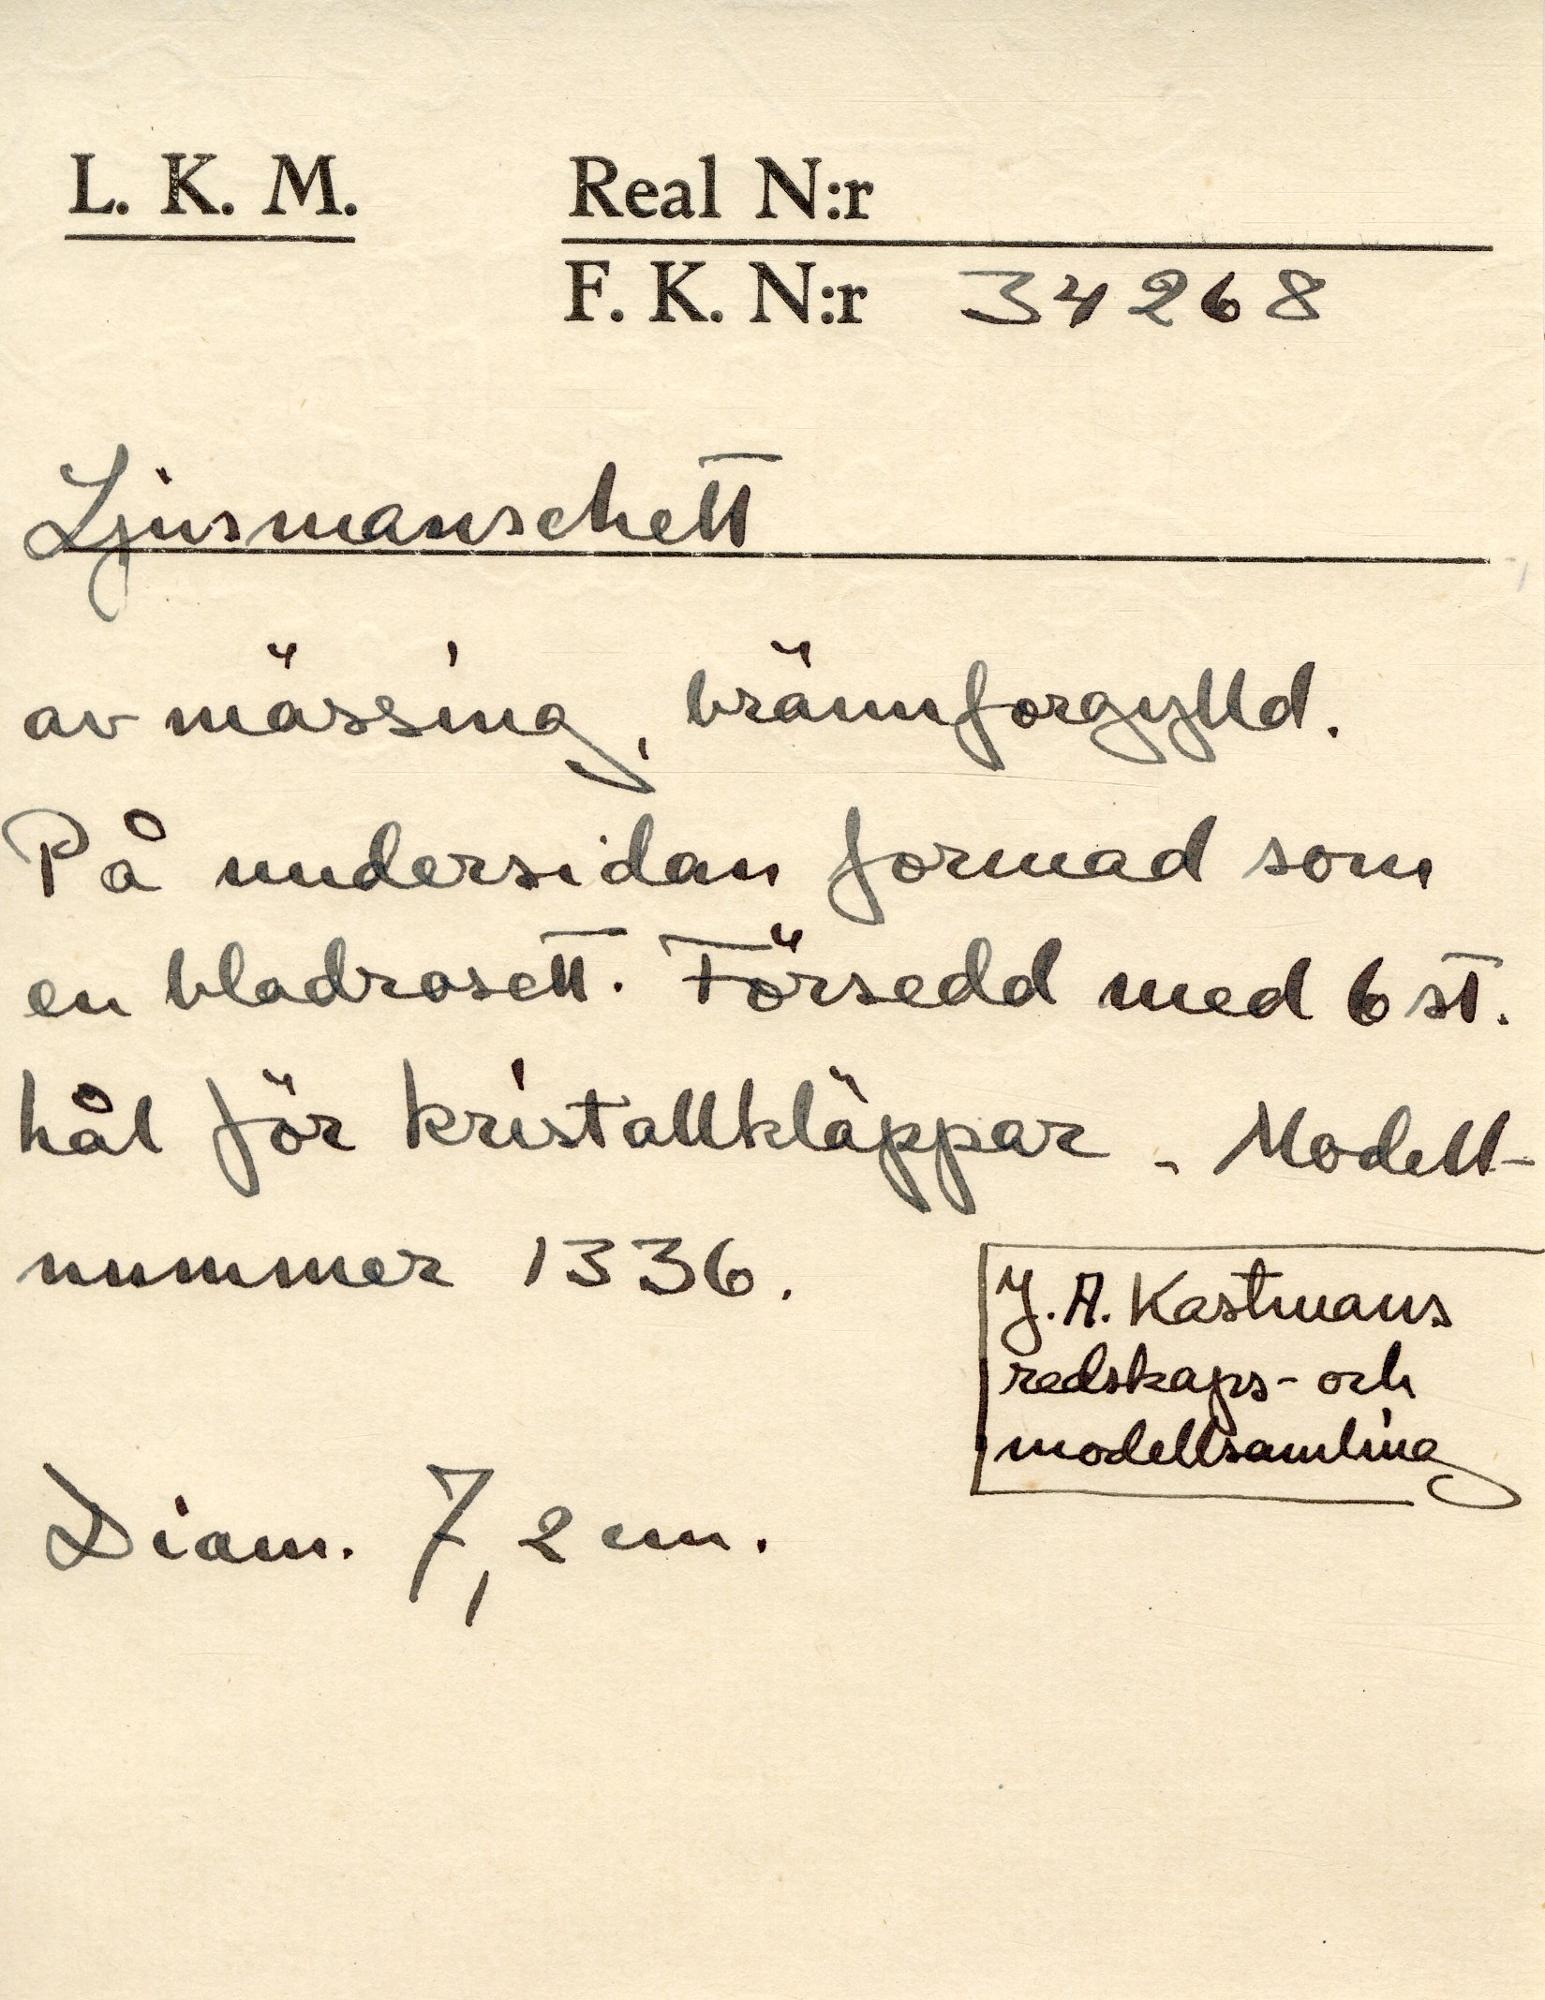 L. K. M.
Real N:r
F. K. N:r 34268
Ljusmanschett
av mässing, brännforgylld.
På undersidan formad som
en bladrosett. Försedd med 6 st.
hål för kristallkläppar. Modell-
nummer 1336.
J. A. Kastmans
redskaps- och
modellsamling
Diam. 7,2 cm.